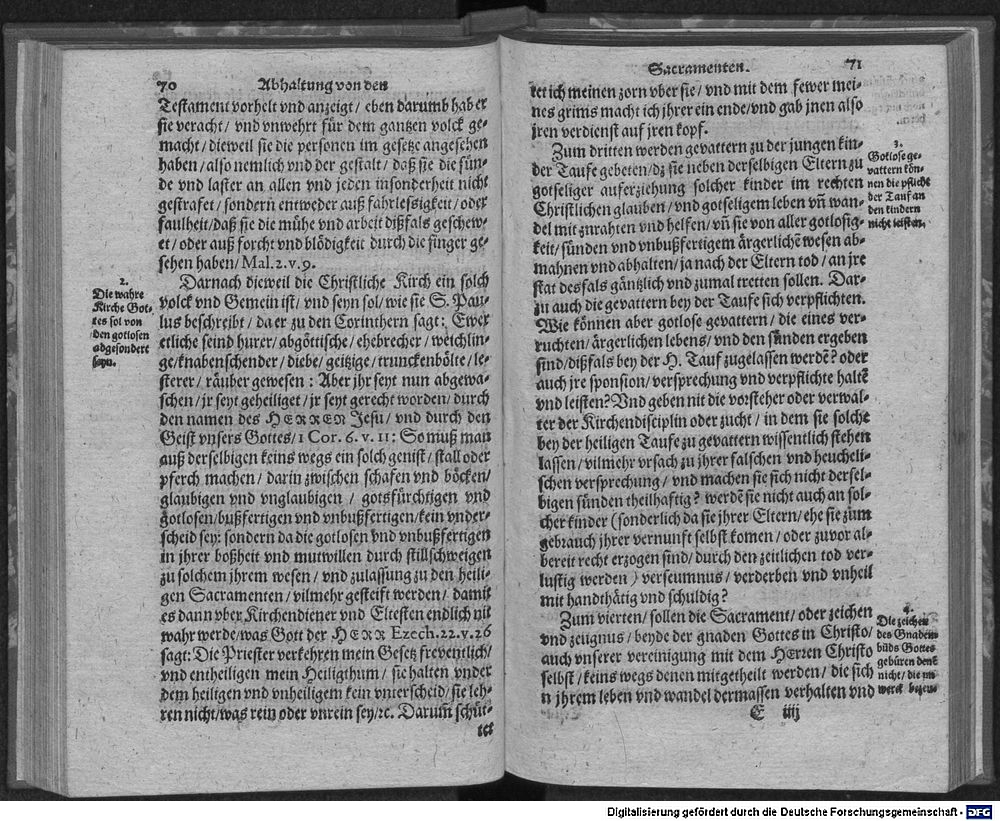 70 Abhaltung von den
Testament vorhelt vnd anzeigt / eben darumb hab er
sie veracht / vnd vnwehrt für dem gantzen volck ge-
macht / dieweil sie die personen im gesetze angesehen
haben / also nemlich vnd der gestalt / daß sie die sün-
de vnd laster an allen vnd jeden insonderheit nicht
gestrafet / sondern entweder auß fahrlessigkeit / oder
faulheit / daß sie die mühe vnd arbeit dißfals geschew-
et / oder auß forcht vnd blödigkeit durch die finger ge-
sehen haben / Mal. 2. v. 9.
Darnach dieweil die Christliche Kirch ein solch
volck vnd Gemein ist / vnd seyn sol / wie sie S. Pau-
lus beschreibt / da er zu den Corinthern sagt: Ewer
etliche seind hurer / abgöttische / ehebrecher / weichlin-
ge / knabenschender / diebe / geitzige / trunckenbölte / le-
sterer / räuber gewesen: Aber jhr seyt nun abgewa-
schen / jr seyt geheiliget / jr seyt gerecht worden / durch
den namen des HERREN Jesu / vnd durch den
Geist vnsers Gottes / 1 Cor. 6. v. 11: So muß man
auß derselbigen keins wegs ein solch genist / stall oder
pferch machen / darin zwischen schafen vnd böcken /
glaubigen vnd vnglaubigen / gotsfürchtigen vnd
gotlosen / bußfertigen vnd vnbußfertigen / kein vnder-
scheid sey: sondern da die gotlosen vnd vnbußfertigen
in jhrer boßheit vnd mutwillen durch stillschweigen
zu solchem jhrem wesen / vnd zulassung zu den heili-
gen Sacramenten / vilmehr gesteift werden / damit
es dann vber Kirchendiener vnd Eltesten endlich nit
wahr werde / was Gott der HERR Ezech. 22. v. 26
sagt: Die Priester verkehren mein Gesetz freventlich /
vnd entheiligen mein Heiligthum / sie halten vnder
dem heiligen vnd vnheiligem kein vnterscheid / sie leh-
ren nicht / was rein oder vnrein sey / ꝛc. Darum schüt-
tet
2.
Die wahre
Kirche Got-
tes sol von
den gotlosen
abgesondert
seyn.
Sacramenten. 71
tet ich meinen zorn vber sie / vnd mit dem fewer mei-
nes grims macht ich jhrer ein ende / vnd gab jnen also
jren verdienst auf jren kopf.
Zum dritten werden gevattern zu der jungen kin-
der Taufe gebeten / dz sie neben derselbigen Eltern zu
gotseliger auferziehung solcher kinder im rechten
Christlichen glauben / vnd gotseligem leben vn̄ wan-
del mit zurahten vnd helfen / vn̄ sie von aller gotlosig-
keit / sünden vnd vnbußfertigem ärgerlichē wesen ab-
mahnen vnd abhalten / ja nach der Eltern tod / an jre
stat desfals gäntzlich vnd zumal tretten sollen. Dar-
zu auch die gevattern bey der Taufe sich verpflichten.
Wie können aber gotlose gevattern / die eines ver-
ruchten / ärgerlichen lebens / vnd den sünden ergeben
sind / dißfals bey der H. Tauf zugelassen werdē? oder
auch jre sponsion / versprechung vnd verpflichte haltē
vnd leisten? Vnd geben nit die vorsteher oder verwal-
ter der Kirchendisciplin oder zucht / in dem sie solche
bey der heiligen Taufe zu gevattern wissentlich stehen
lassen / vilmehr vrsach zu jhrer falschen vnd heucheli-
schen versprechung / vnd machen sie sich nicht dersel-
bigen sünden theilhaftig? werdē sie nicht auch an sol-
cher kinder (sonderlich da sie jhrer Eltern / ehe sie zum
gebrauch jhrer vernunft selbst komen / oder zuvor al-
bereit recht erzogen sind / durch den zeitlichen tod ver-
lustig werden) verseumnus / verderben vnd vnheil
mit handthätig vnd schuldig?
Zum vierten / sollen die Sacrament / oder zeichen
vnd zeugnus / beyde der gnaden Gottes in Christo /
auch vnserer vereinigung mit dem Herren Christo
selbst / keins wegs denen mitgetheilt werden / die sich
in jhrem leben vnd wandel dermassen verhalten vnd
E iiij
3.
Gotlose ge-
vattern kön-
nen die pflicht
der Tauf an
den kindern
nicht leisten.
4.
Die zeichen
des Gnaden-
bűds Gottes
gebüren denē
nicht / die mit
werck bezeu-
Digitalisierung gefördert durch die Deutsche Forschungsgemeinschaft - DFG